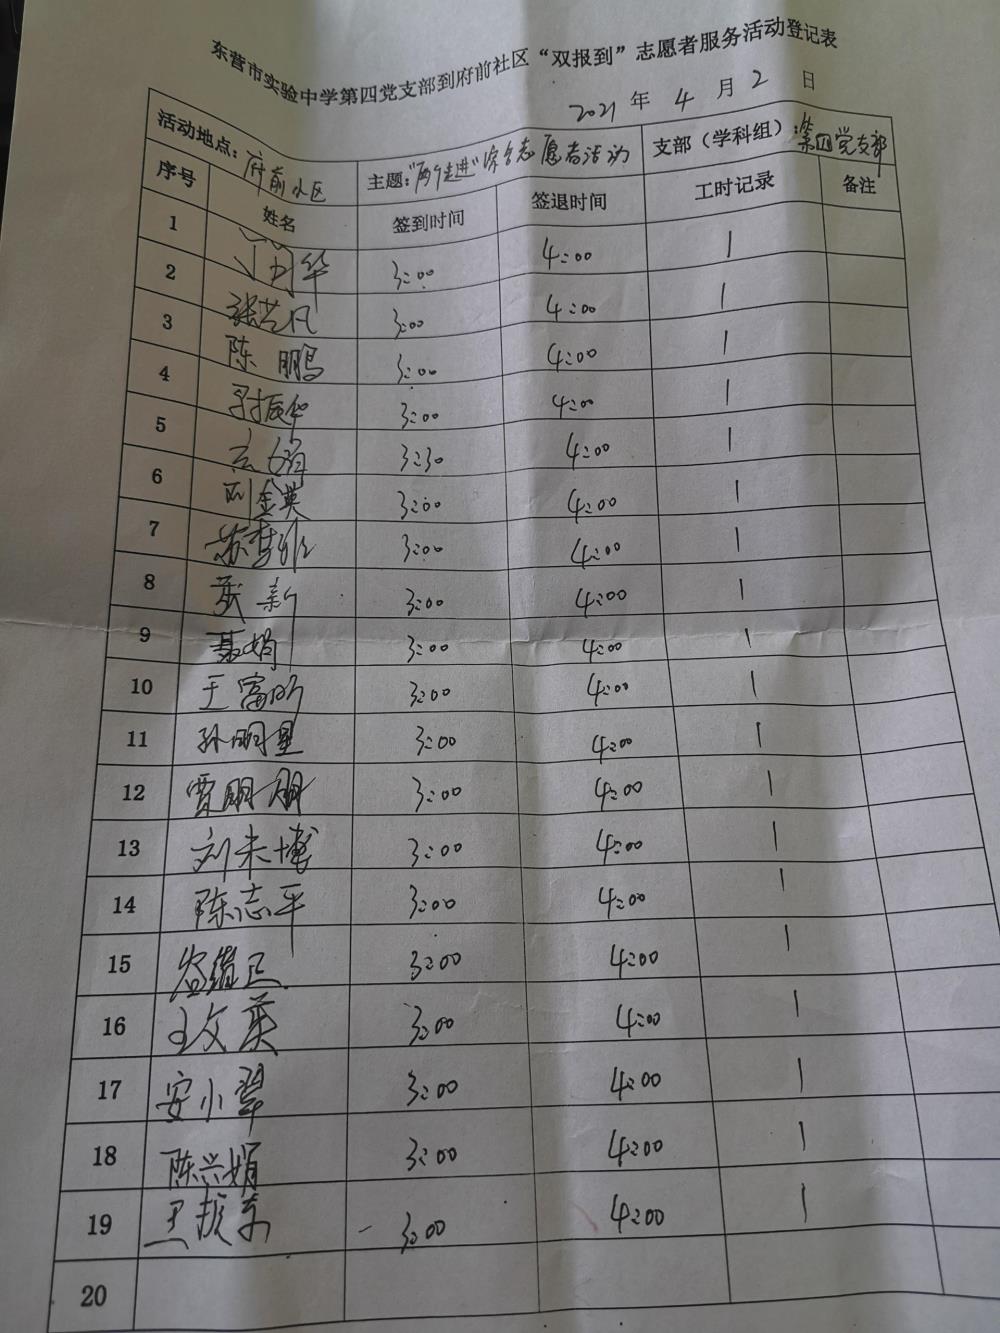 东营市实验中学第四党支部到府前社区“双报到”志愿者服务活动登记表
2021 年 4 月 2 日
活动地点：府前小区 主题：“两个走进”综合志愿者活动 支部（学科组）：第四党支部
序号 姓名 签到时间 签退时间 工时记录 备注
1 华 3:00 4:00 1
2 张艺凡 3:00 4:00 1
3 陈鹏 3:00 4:00 1
4 尹振华 3:00 4:00 1
5 3:30 4:00 1
6 刘金英 3:00 4:00 1
7 苏 3:00 4:00 1
8 张新 3:00 4:00 1
9 聂娟 3:00 4:00 1
10 王富 3:00 4:00 1
11 孙明星 3:00 4:00 1
12 贾朋朋 3:00 4:00 1
13 刘来博 3:00 4:00 1
14 陈志平 3:00 4:00 1
15 3:00 4:00 1
16 王文英 3:00 4:00 1
17 安小翠 3:00 4:00 1
18 陈兴娟 3:00 4:00 1
19 振东 3:00 4:00 1
20